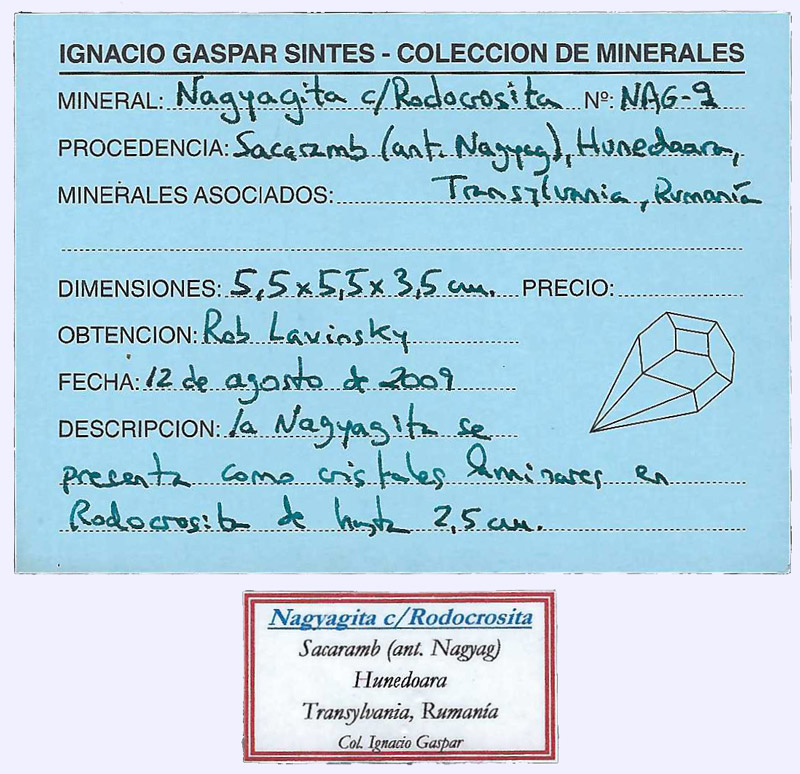 IGNACIO GASPAR SINTES - COLECCION DE MINERALES
MINERAL: Nagyagita c/Rodocrosita Nº: NAG-9
PROCEDENCIA: Sacaramb (ant. Nagyag), Hunedoara,
MINERALES ASOCIADOS: Transylvania, Rumanía
DIMENSIONES: 5,5 x 5,5 x 3,5 cm. PRECIO:
OBTENCION: Rob Lavinsky
FECHA: 12 de agosto de 2009
DESCRIPCION: la Nagyagita se
presenta como cristales laminares en
Rodocrosita de hasta 2,5 cm.
Nagyagita c/Rodocrosita
Sacaramb (ant. Nagyag)
Hunedoara
Transylvania, Rumanía
Col. Ignacio Gaspar